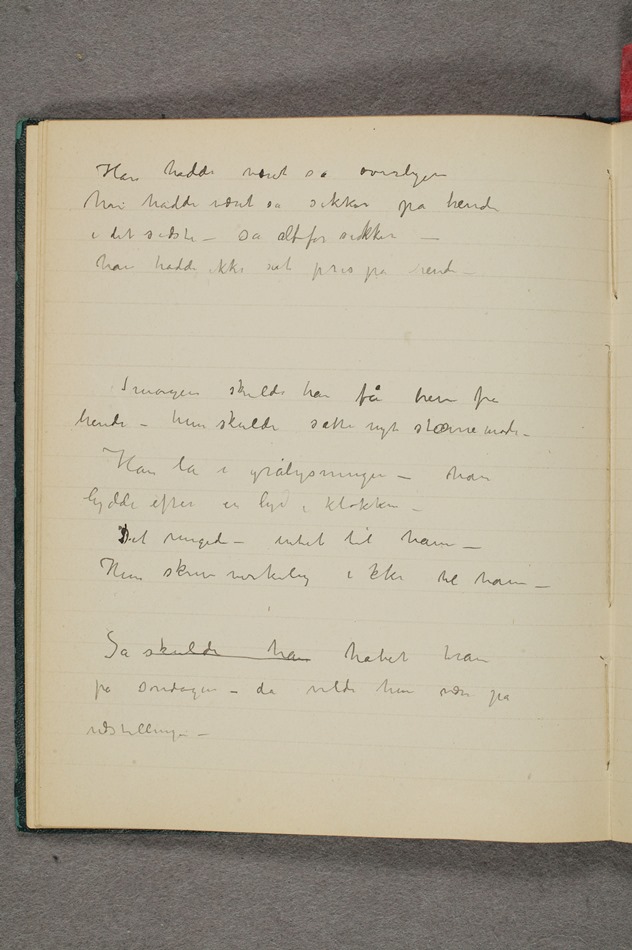 Han hadde vært så overlegen
han hadde vært så sikker på hende
i det sidste – så altfor sikker –
han hadde ikke sat pris på hende –
I morgen skulde han få brev fra
hende – hun skulde sætte nyt stævnemøde –
Han lå i grålysningen – han
lydde efter en lyd i klokken –
Det ringed – intet til ham –
Hun skrev virkelig ikke til ham –
Så skulde han håbet han
på søndagen – da vilde hun være på
udstillingen –